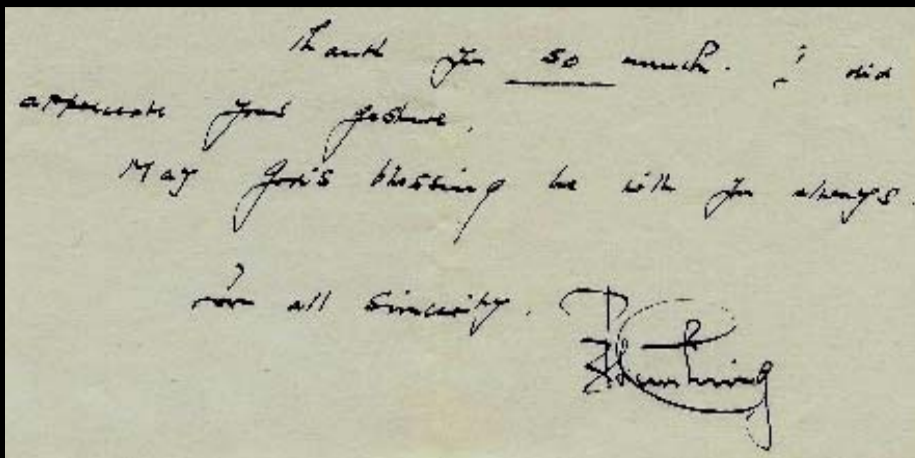 Thank you so much. I did
appreciate your gesture.
May God's blessing be with you always.
In all sincerity.